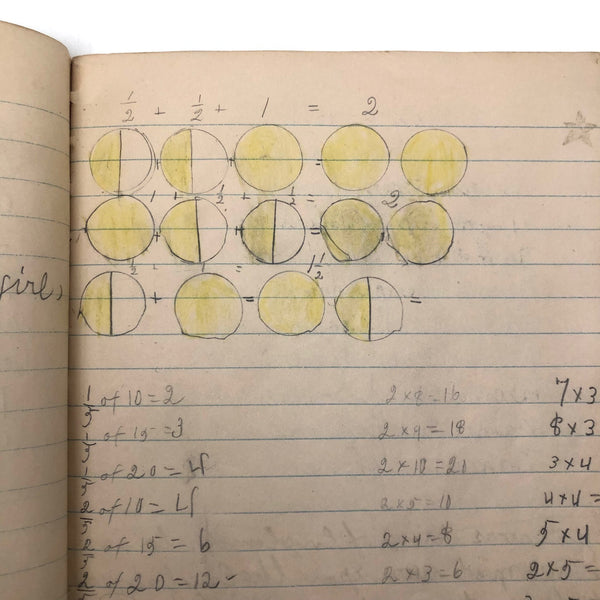 1/2 + 1/2 + 1 = 2
+ + =
1 + 1/2 + 1/2 = 2
+ + =
1/2 + 1 = 1 1/2
+ = =
girls
1/5 of 10 = 2 2×8=16 7×3
1/5 of 15 = 3 2×9=18 8×3
1/5 of 20 = 4 2×10=20 3×4
2/5 of 10 = 4 2×5=10 4×4=
2/5 of 15 = 6 2×4=8 5×4
2/5 of 20 = 12 2×3=6 2×5=